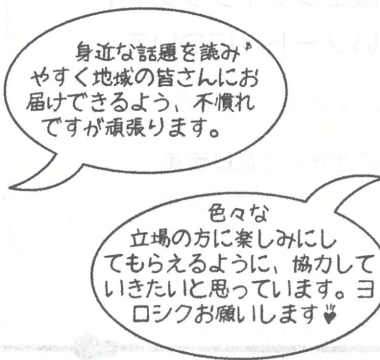 身近な話題を読み
やすく地域の皆さんにお
届けできるよう、不慣れ
ですが頑張ります。
色々な
立場の方に楽しみにし
てもらえるように、協力して
いきたいと思っています。ヨ
ロシクお願いします♥